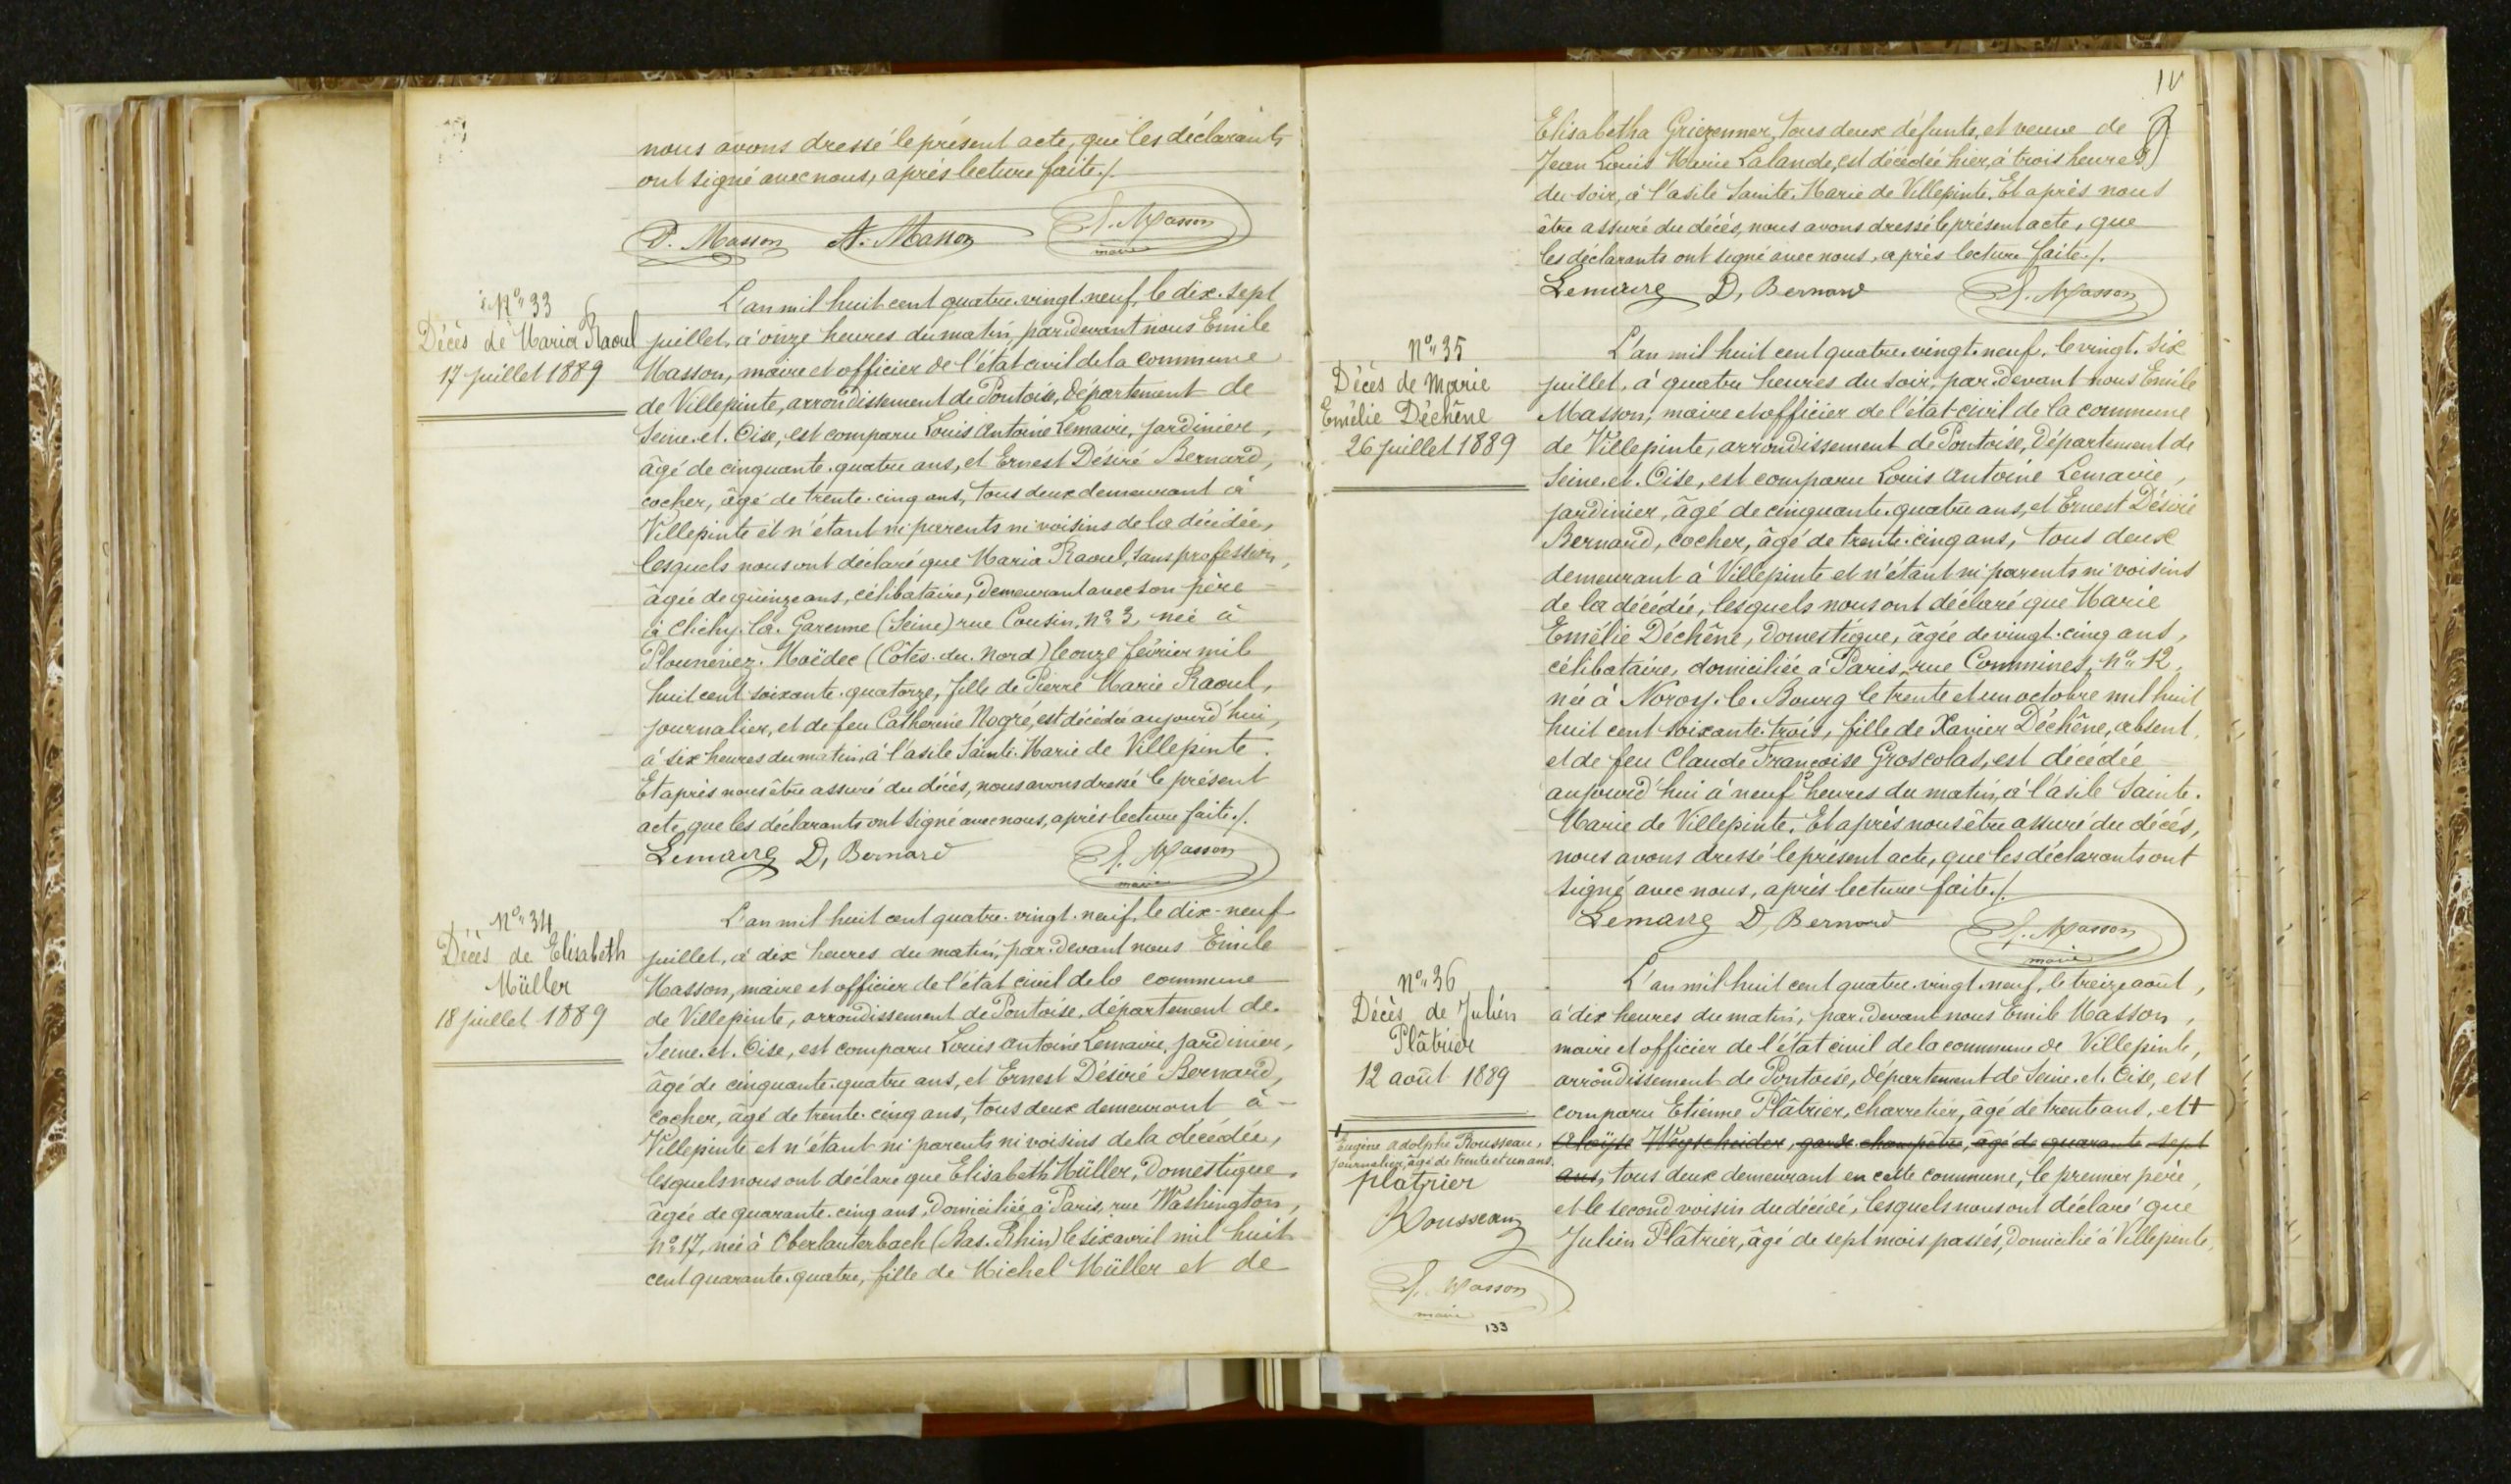 nous avons dressé le présent acte, que les déclarants
ont signé avec nous, après lecture faite./.
P. Masson A. Masson E. Masson
maire
N° 33
Décès de Maria Raoul
17 juillet 1889
L'an mil huit cent quatre-vingt-neuf, le dix-sept
juillet, à onze heures du matin, par-devant nous Emile
Masson, maire et officier de l'état civil de la commune
de Villepinte, arrondissement de Pontoise, département de
Seine-et-Oise, est comparu Louis Antoine Lemaire, jardinier,
âgé de cinquante-quatre ans, et Ernest Désiré Bernard,
cocher, âgé de trente-cinq ans, tous deux demeurant à
Villepinte et n'étant ni parents ni voisins de la décédée,
lesquels nous ont déclaré que Maria Raoul, sans profession,
âgée de quinze ans, célibataire, demeurant avec son père
à Clichy-la-Garenne (Seine) rue Cousin, n° 3, née à
Plounévez-Moëdec (Côtes-du-Nord) le onze février mil
huit cent soixante-quatorze, fille de Pierre Marie Raoul,
journalier, et de feu Catherine Nogré, est décédée aujourd'hui,
à six heures du matin, à l'asile Sainte-Marie de Villepinte.
Et après nous être assuré du décès, nous avons dressé le présent
acte, que les déclarants ont signé avec nous, après lecture faite./.
Lemaire D, Bernard E. Masson
maire
N° 34
Décès de Elisabeth
Müller
18 juillet 1889
L'an mil huit cent quatre-vingt-neuf, le dix-neuf
juillet, à dix heures du matin, par-devant nous Emile
Masson, maire et officier de l'état civil de la commune
de Villepinte, arrondissement de Pontoise, département de
Seine-et-Oise, est comparu Louis Antoine Lemaire, jardinier,
âgé de cinquante-quatre ans, et Ernest Désiré Bernard,
cocher, âgé de trente-cinq ans, tous deux demeurant à
Villepinte et n'étant ni parents ni voisins de la décédée,
lesquels nous ont déclaré que Elisabeth Müller, domestique,
âgée de quarante-cinq ans, domiciliée à Paris, rue Washington,
n° 17, née à Oberlauterbach (Bas-Rhin) le six avril mil huit
cent quarante-quatre, fille de Michel Müller et de
Elisabetha Griezenner, tous deux défunts, et veuve de
Jean Louis Marie Lalande, est décédée hier, à trois heures
du soir, à l'asile Sainte-Marie de Villepinte. Et après nous
être assuré du décès, nous avons dressé le présent acte, que
les déclarants ont signé avec nous, après lecture faite./.
Lemaire D, Bernard E. Masson
N° 35
Décès de Marie
Emélie Déchêne
26 juillet 1889
L'an mil huit cent quatre-vingt-neuf, le vingt-six
juillet, à quatre heures du soir, par-devant nous Emile
Masson, maire et officier de l'état-civil de la commune
de Villepinte, arrondissement de Pontoise, département de
Seine-et-Oise, est comparu Louis Antoine Lemaire,
jardinier, âgé de cinquante-quatre ans, et Ernest Désiré
Bernard, cocher, âgé de trente-cinq ans, tous deux
demeurant à Villepinte et n'étant ni parents ni voisins
de la décédée, lesquels nous ont déclaré que Marie
Emélie Déchêne, domestique, âgée de vingt-cinq ans,
célibataire, domiciliée à Paris, rue Commines, n° 12,
née à Noroy-le-Bourg le trente et un octobre mil huit
huit cent soixante-trois, fille de Xavier Déchêne, absent,
et de feu Claude Françoise Groscolas, est décédée
aujourd'hui à neuf heures du matin, à l'asile Sainte-
Marie de Villepinte. Et après nous être assuré du décès,
nous avons dressé le présent acte, que les déclarants ont
signé avec nous, après lecture faite./.
Lemaire D, Bernard E. Masson
maire
N° 36
Décès de Julien
Plâtrier
12 août 1889
L'an mil huit cent quatre-vingt-neuf, le treize août,
à dix heures du matin, par-devant nous Emile Masson,
maire et officier de l'état civil de la commune de Villepinte,
arrondissement de Pontoise, département de Seine-et-Oise, est
comparu Etienne Plâtrier, charretier, âgé de trente ans, et +
Aloïyse Weyscheider, garde-champêtre, âgé de quarante-sept
ans, tous deux demeurant en cette commune, le premier père,
et le second voisin du décédé, lesquels nous ont déclaré que
Julien Plâtrier, âgé de sept mois passés, domicilié à Villepinte,
+ Eugène Adolphe Rousseau,
journalier, âgé de trente et un ans.
platrier
Rousseau
E. Masson
maire
133